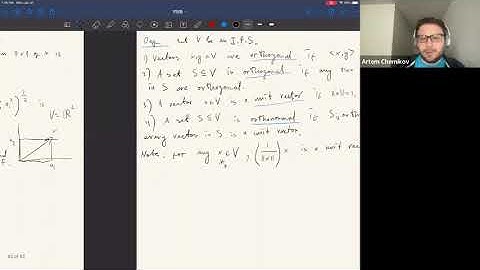 Def. Let V be an I.P.S.
1) Vectors x, y ∈ V are orthogonal if <x,y>
2) A set S ⊆ V is orthogonal if any two
in S are orthogonal.
3) A vector x ∈ V is a unit vector if ||x|| = 1.
4) A set S ⊆ V is orthonormal if S is orthog
every vector in S is a unit vector.
Note. For any x ∈ V, (1/||x||) x is a unit vec
V = ℝ²
Artem Chernikov